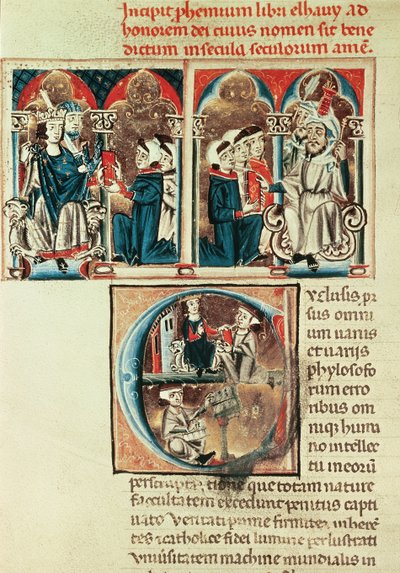 Incipit phemium libri elhauy ad
honorem dei cuius nomen sit bene
dictum in secula seculorum amē.
Exclusis pr
sus omni
um uanis
et uariis
phylosofo
rum erro
ribus om
niq; humano intellec
tu in eorū
perscruptatione que totam nature
facultatem excedunt penitus capti
uato ueritati prime firmiter inhere
tes catholice fidei lumine perlustrati
uniuersitatem machine mundialis in